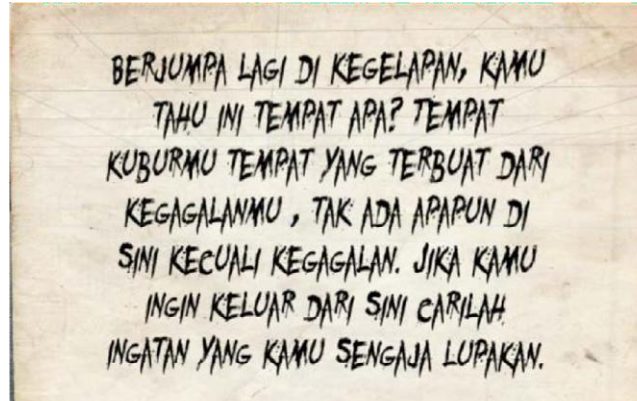 BERJUMPA LAGI DI KEGELAPAN, KAMU
TAHU INI TEMPAT APA? TEMPAT
KUBURMU TEMPAT YANG TERBUAT DARI
KEGAGALANMU , TAK ADA APAPUN DI
SINI KECUALI KEGAGALAN. JIKA KAMU
INGIN KELUAR DARI SINI CARILAH
INGATAN YANG KAMU SENGAJA LUPAKAN.